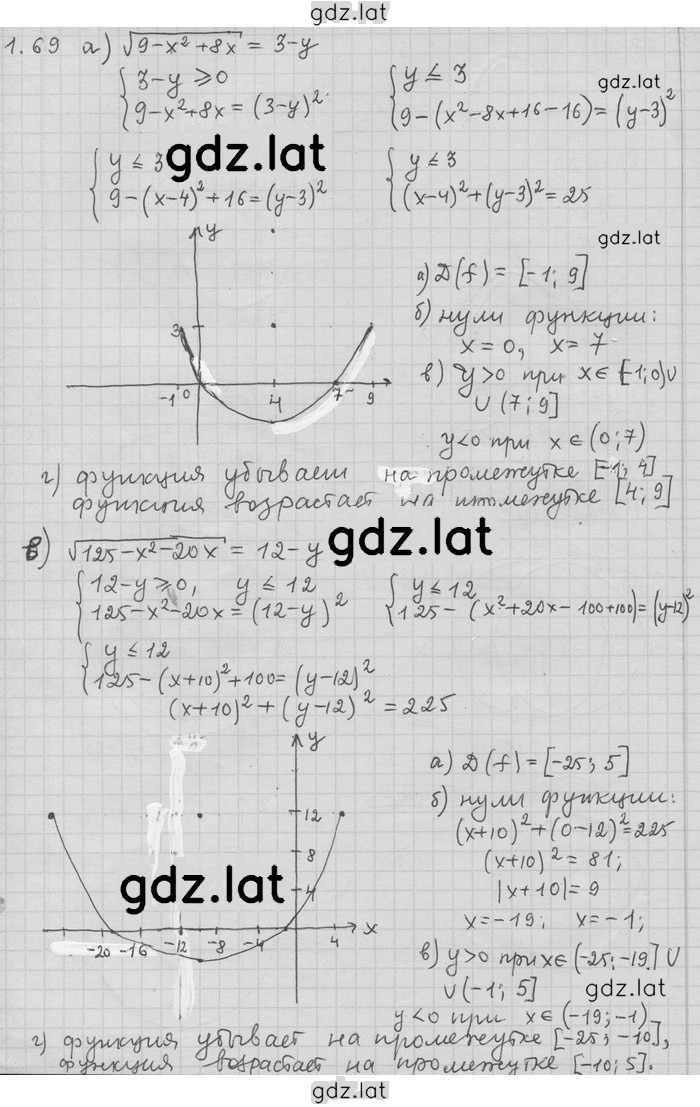 gdz.lat
1.69 а) √(9-x²+8x) = 3-y
{ 3-y ⩾ 0
9-x²+8x = (3-y)²
{ y ⩽ 3
9-(x²-8x+16-16) = (y-3)²
gdz.lat
{ y ⩽ 3
9-(x-4)²+16 = (y-3)²
gdz.lat
{ y ⩽ 3
(x-4)²+(y-3)² = 25
gdz.lat
y
3
-1 0 4 7 9
а) D(f) = [-1; 9]
б) нули функции:
x = 0, x = 7
в) y>0 при x∈[-1;0)∪
∪(7; 9]
y<0 при x∈(0;7)
г) функция убывает на промежутке [-1; 4]
функция возрастает на промежутке [4; 9]
в) √(125-x²-20x) = 12-y
gdz.lat
{ 12-y ⩾ 0, y ⩽ 12
125-x²-20x = (12-y)²
{ y ⩽ 12
125-(x²+20x-100+100) = (y-12)²
{ y ⩽ 12
125-(x+10)²+100 = (y-12)²
(x+10)²+(y-12)² = 225
y
12
8
4
-20 -16 -12 -8 -4 4 x
gdz.lat
а) D(f) = [-25; 5]
б) нули функции:
(x+10)²+(0-12)² = 225
(x+10)² = 81;
|x+10| = 9
x = -19; x = -1;
в) y>0 при x∈(-25;-19]∪
∪(-1; 5]
gdz.lat
y<0 при x∈(-19;-1)
г) функция убывает на промежутке [-25; -10],
функция возрастает на промежутке [-10; 5].
gdz.lat